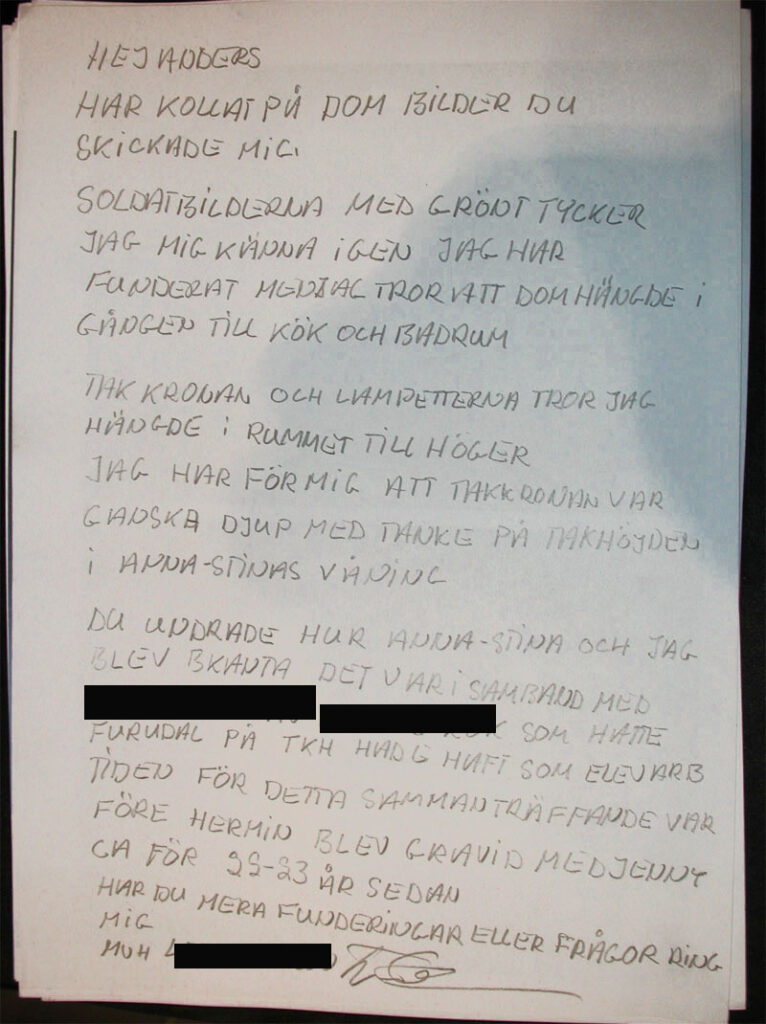 HEJ ANDERS
HAR KOLLAT PÅ DOM BILDER DU
SKICKADE MIG.
SOLDATBILDERNA MED GRÖNT TYCKER
JAG MIG KÄNNA IGEN JAG HAR
FUNDERAT MEN JAG TROR ATT DOM HÄNGDE I
GÅNGEN TILL KÖK OCH BADRUM
TAK KRONAN OCH LAMPETTERNA TROR JAG
HÄNGDE I RUMMET TILL HÖGER
JAG HAR FÖR MIG ATT TAKKRONAN VAR
GANSKA DJUP MED TANKE PÅ TAKHÖJDEN
I ANNA-STINAS VÅNING
DU UNDRADE HUR ANNA-STINA OCH JAG
BLEV BKANTA DET VAR I SAMBAND MED
SOM HATTE
FURUDAL PÅ TKH HADE HAFT SOM ELEVARB
TIDEN FÖR DETTA SAMMANTRÄFFANDE VAR
FÖRE HERMIN BLEV GRAVID MED JENNY
CA FÖR 22-23 ÅR SEDAN
HAR DU MERA FUNDERINGAR ELLER FRÅGOR RING
MIG
MVH